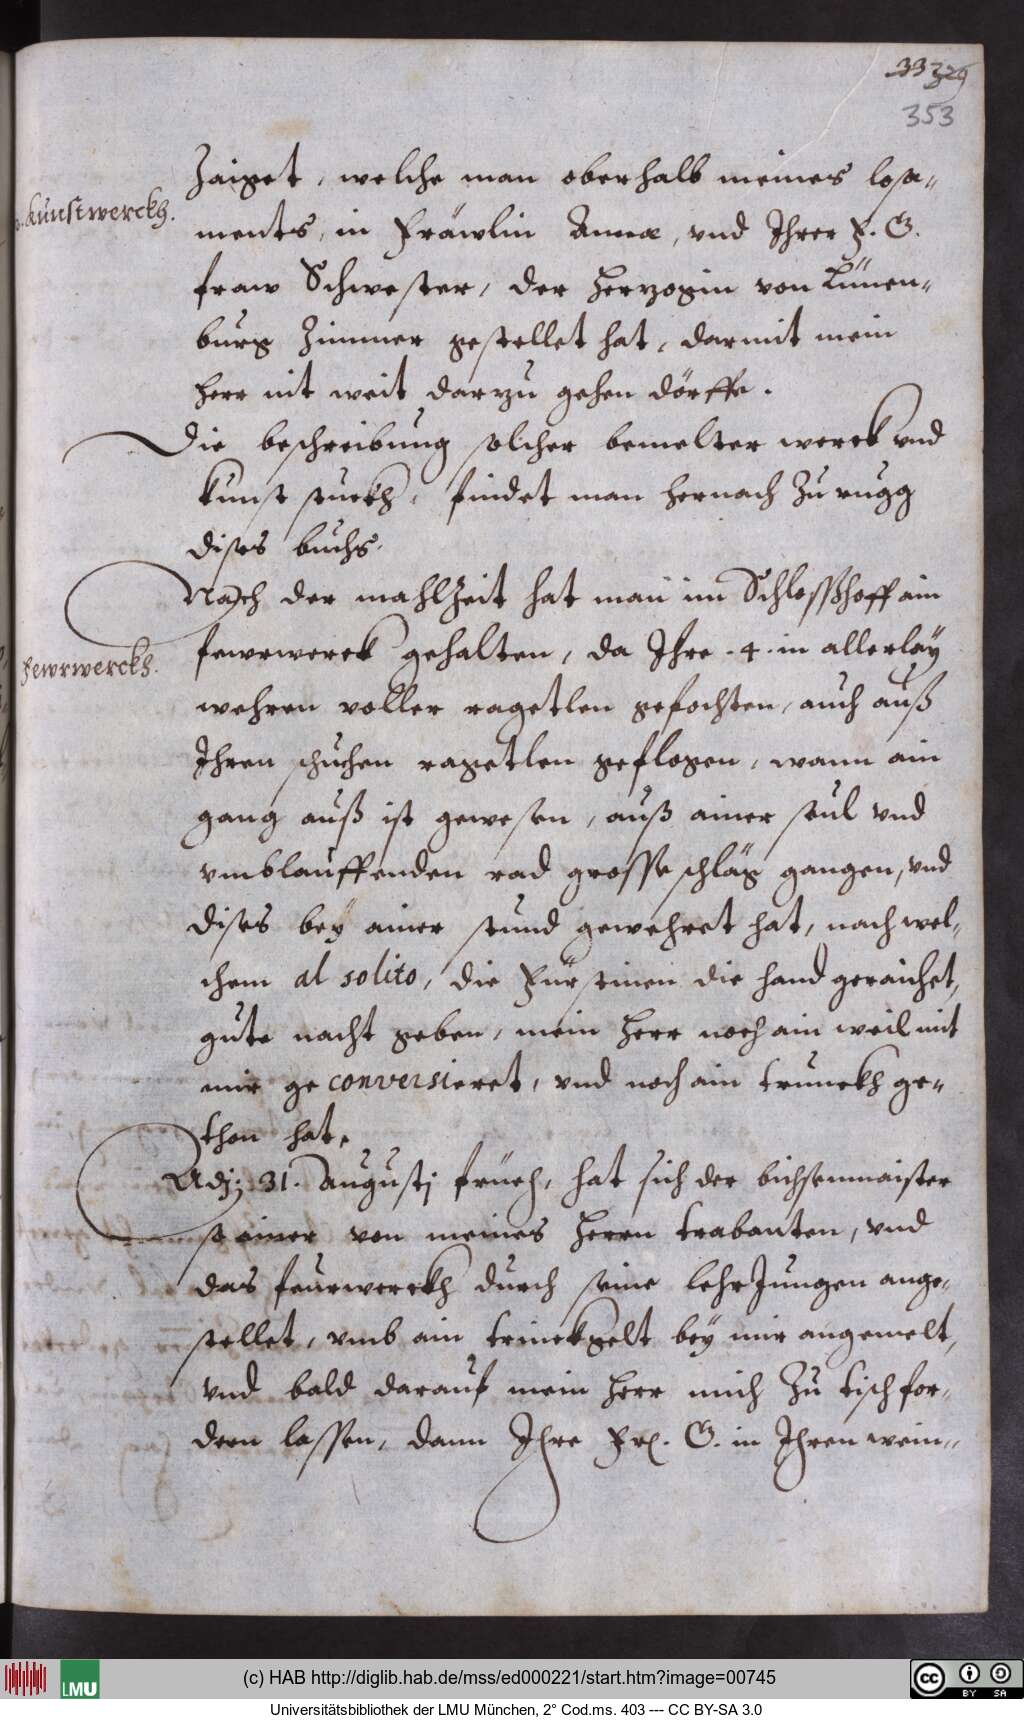 33 329
353
Kunstwerckh.
Zaiget, welche man oberhalb meines losa-
ments, in Fräwlin Annæ, vnd Ihrer F. G.
fraw Schwester, der Herzogin von Lünen-
burg Zimmer gestellet hat, darmit mein
herr nit weit darzu gehen dörffe.
Die beschreibung solcher bemelter werck vnd
kunst stuckh, findet man hernach Zu rugg
dises buchs.
Nach der mahlzeit hat man im Schlosshoff ain
Fewrwerckh.
fewrwerck gehalten, da Ihre .4. in allerley
wehren voller ragetlen gefochten, auch auß
Ihren schuchen ragetlen geflogen, wann ain
gang auß ist gewesen, auß ainer seul vnd
vmblauffenden rad grosse schläg gangen, vnd
dises bey ainer stund gewehret hat, nach wel-
chem al solito, die Fürstinen die hand geraichet,
gute nacht geben, mein herr noch ain weil mit
mir ge conversieret, vnd noch ain trunckh ge-
thon hat.
Adj; 31. Augustj früeh, hat sich der bichsenmaister
so ainer von meines herrn trabanten, vnd
das feurwerckh durch seine lehr Jungen ange-
stellet, vmb ain trinckgelt bey mir angemelt,
vnd bald darauf mein herr mich Zu tisch for-
dern lassen, dann Ihre Frl. G. in Ihren wein-
(c) HAB http://diglib.hab.de/mss/ed000221/start.htm?image=00745
LMU
Universitätsbibliothek der LMU München, 2° Cod.ms. 403 --- CC BY-SA 3.0
cc BY SA